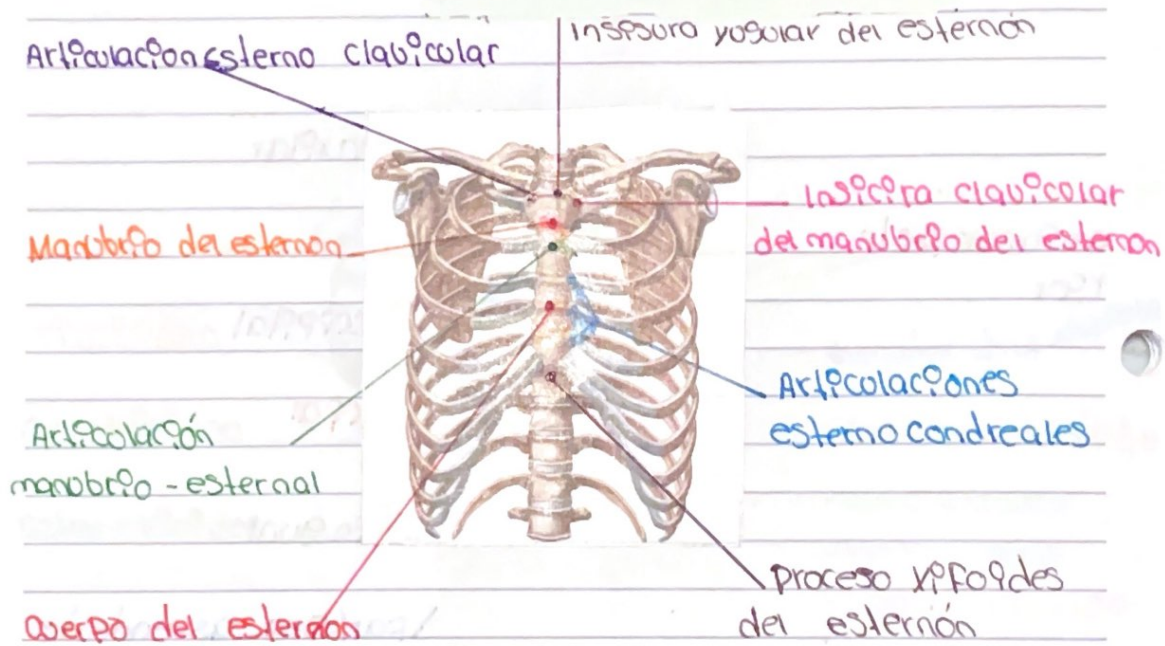 Articulacion Esterno Clavicolar
Insesura yogular del esternón
Insicira Clavicolar
del manubrio del esternon
Manubrio del esternon
Articolaciones
esterno condreales
Articolación
manobrio - esternal
Proceso xifoides
del esternón
Querpo del esternon